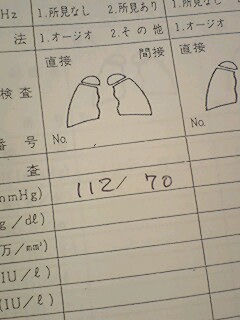 Hz 1.所見なし 2.所見あり 1.所見なし
法 1.オージオ 2.その他 1.オージ
直接 間接 直接
検査
番号 No. No.
査
mHg) 112/70
g/dℓ)
万/mm³)
IU/ℓ)
(IU/ℓ)